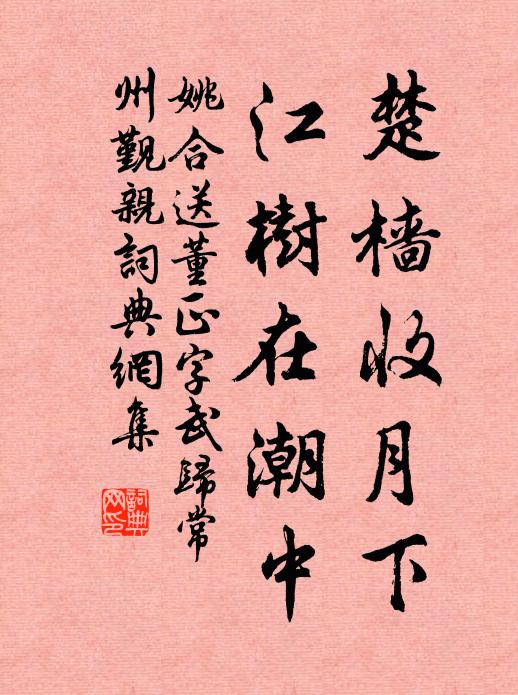 楚樯收月下
江樹在潮中
姚合送董正字武歸常
州覲親詞典網集
詞典
网印